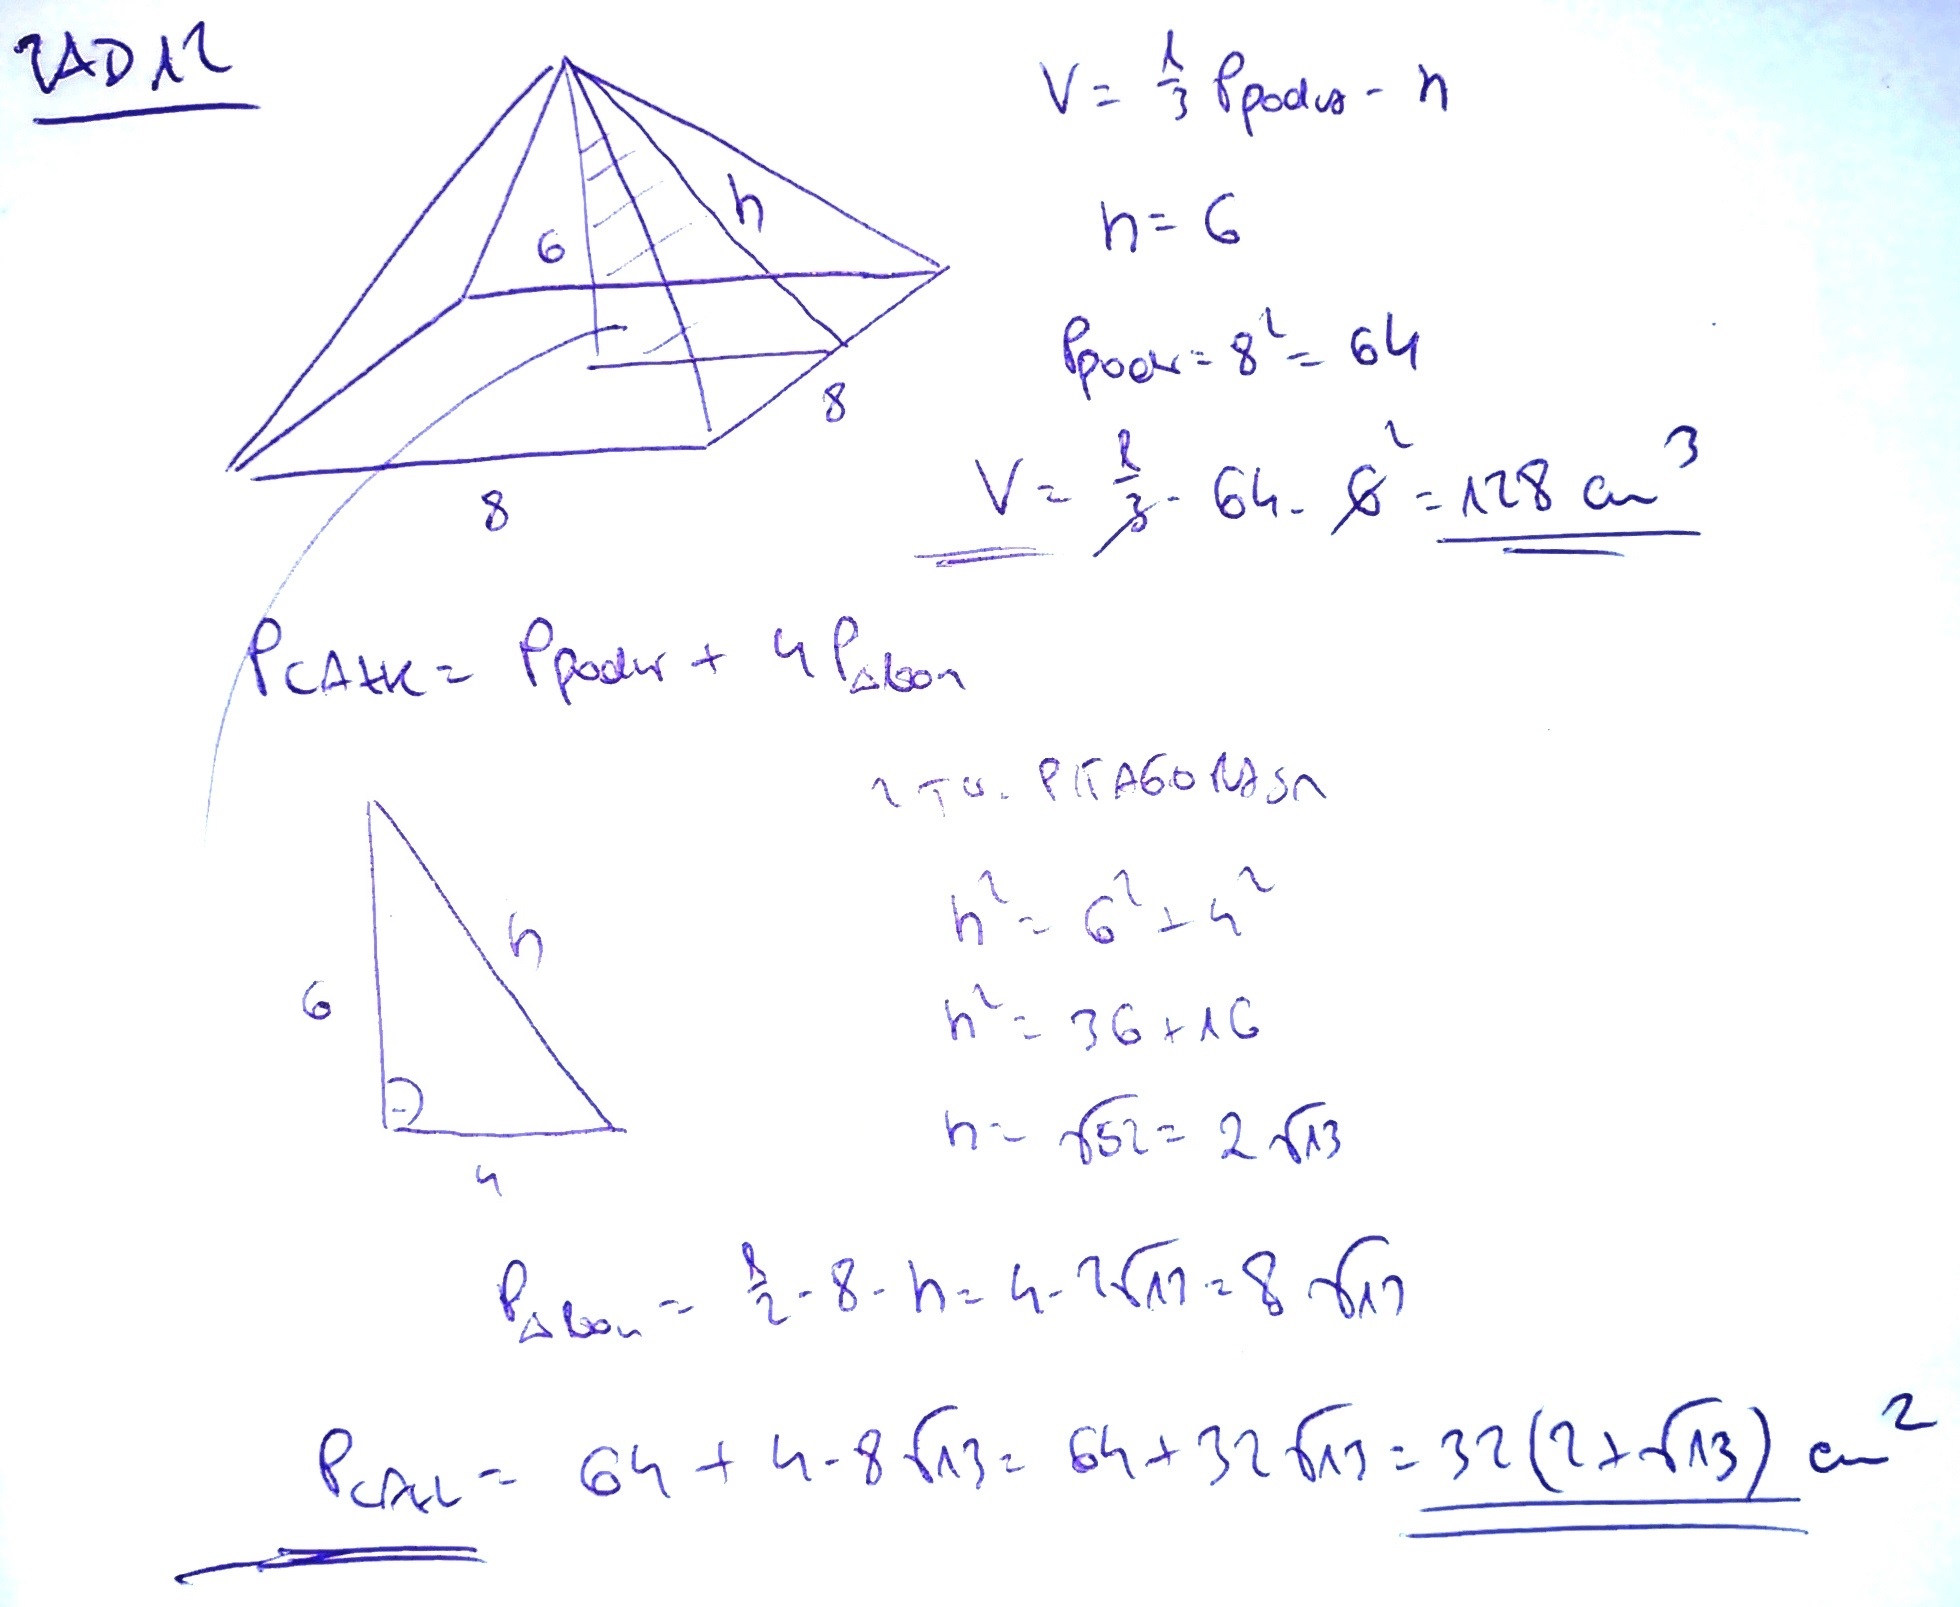 ZAD 12
V = 1/3 Ppodst · h
6
h
h = 6
Ppodst = 8² = 64
8
8
V = 1/3 · 64 · 6 ² = 128 cm³
PCAŁK = Ppodst + 4 P△bocn
Z TW. PITAGORASA
h² = 6² + 4²
h
6
h² = 36 + 16
h = √52 = 2√13
4
P△bocn = 1/2 · 8 · h = 4 · 2√13 = 8√13
PCAŁK = 64 + 4 · 8√13 = 64 + 32√13 = 32(2+√13) cm²